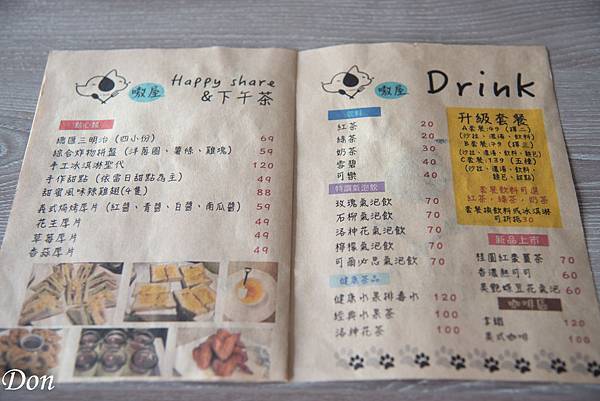 嗷屋
Happy share
&下午茶
點心類
總匯三明治(四小份) 69
綜合炸物拼盤(洋蔥圈、薯條、雞塊) 59
手工冰淇淋聖代 120
手作甜點(依當日甜點為主) 49
甜蜜風味辣雞翅(4隻) 88
義式焗烤厚片(紅醬、青醬、白醬、南瓜醬) 59
花生厚片 49
草莓厚片 49
香蒜厚片 49
嗷屋
Drink
飲料
紅茶 20
綠茶 20
奶茶 30
雪碧 40
可樂 40
特調氣泡飲
玫瑰氣泡飲 70
石榴氣泡飲 70
洛神花氣泡飲 70
檸檬氣泡飲 70
可爾必思氣泡飲 70
健康茶品
健康水果排毒水 120
經典水果茶 100
洛神花茶 100
升級套餐
A套餐:49 (擇二)
(沙拉、濃湯、飲料)
B套餐:99 (擇三)
(沙拉、濃湯、飲料、麵包)
C套餐:139 (五種)
(沙拉、濃湯、飲料、
麵包、甜點)
套餐飲料可選
紅茶、綠茶、奶茶
套餐換飲料或冰淇淋
可折抵30
新品上市
桂圓紅棗薑茶 70
香濃熱可可 60
英艷蝶豆花氣泡 60
咖啡區
拿鐵 120
美式咖啡 100
Don